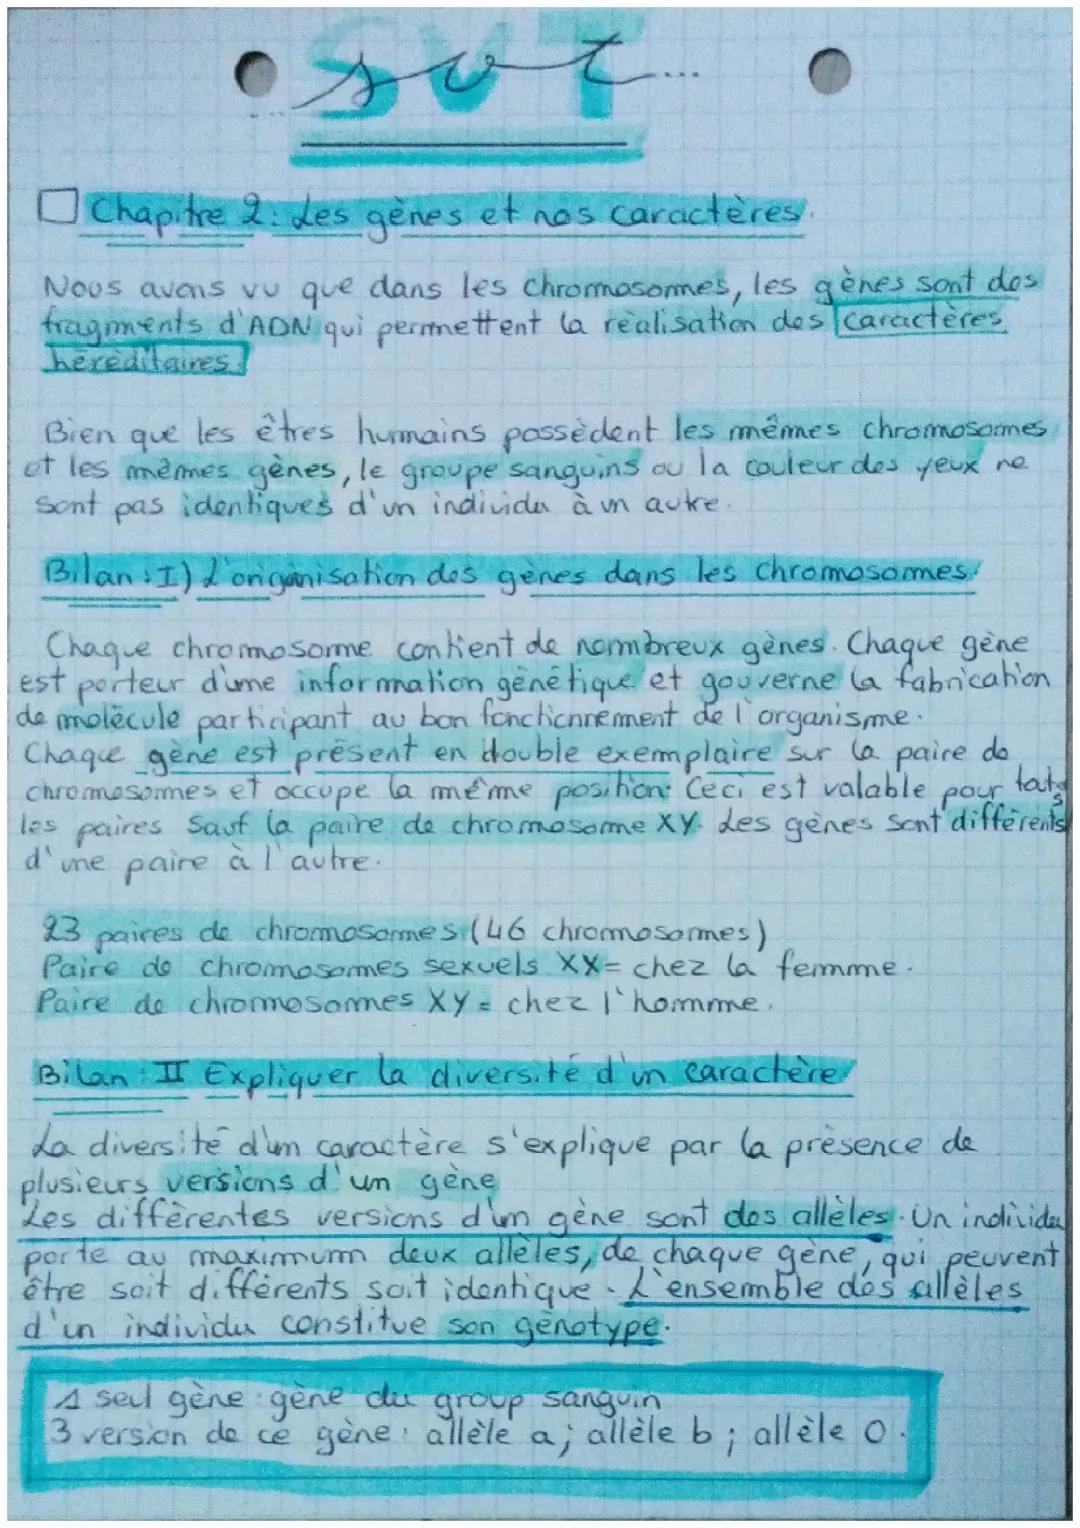 SVT
svt...
Chapitre 2: Les gènes et nos caractères.
Nous avons vu que dans les chromosomes, les gènes sont des
fragments d'ADN qui permettent la réalisation des caractères
héréditaires.
Bien que les êtres humains possèdent les mêmes chromosomes
et les mêmes gènes, le groupe sanguins ou la couleur des yeux ne
sont pas identiques d'un individu à un autre.
Bilan : I) L'origanisation des gènes dans les chromosomes.
Chaque chromosome contient de nombreux gènes. Chaque gène
est porteur d'une information génétique et gouverne la fabrication
de molécule participant au bon fonctionnement de l'organisme.
Chaque gène est présent en double exemplaire sur la paire de
chromosomes et occupe la même position. Ceci est valable pour tats
les paires sauf la paire de chromosome XY. Les gènes sont différents
d'une paire à l'autre.
23 paires de chromosomes (46 chromosomes)
Paire de chromosomes sexuels XX= chez la femme.
Paire de chromosomes XY = chez l'homme.
Bilan : II Expliquer la diversité d'un caractère
La diversité d'un caractère s'explique par la présence de
plusieurs versions d'un gène
Les différentes versions d'un gène sont des allèles. Un individu
porte au maximum deux allèles, de chaque gène, qui peuvent
être soit différents soit identique. L'ensemble des allèles
d'un individu constitue son génotype.
1 seul gène : gène du group sanguin
3 version de ce gène : allèle a ; allèle b ; allèle O.